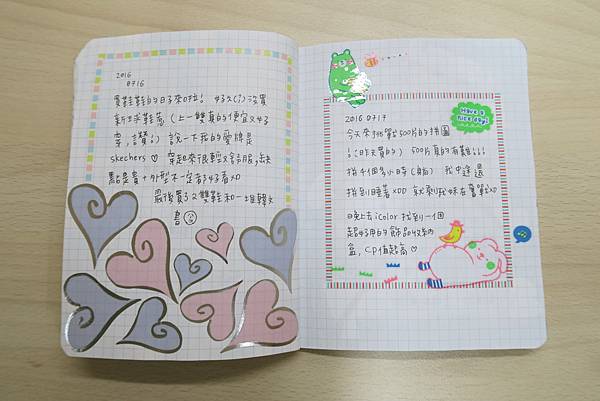 2016
0716
買鞋鞋的日子來啦! 好久(?)沒買
新球鞋蕊 (上一雙真的便宜又好
穿,讚!) 說一下我的愛牌是
skechers ♡ 穿起來很輕又舒服,缺
點是貴+外型不一定都好看XD
最後買了2雙鞋和一組韓文
書
2016 0717
今天來挑戰500片的拼圖
!(昨天買的) 500片真的有難!!!
拼4個多小時(躺) 我中途還
拼到睡著XDD 就剩我妹在奮戰XD
晚上去iColor找到一個
超好用的飾品收納
盒,CP值超高♡
Have a
nice day!